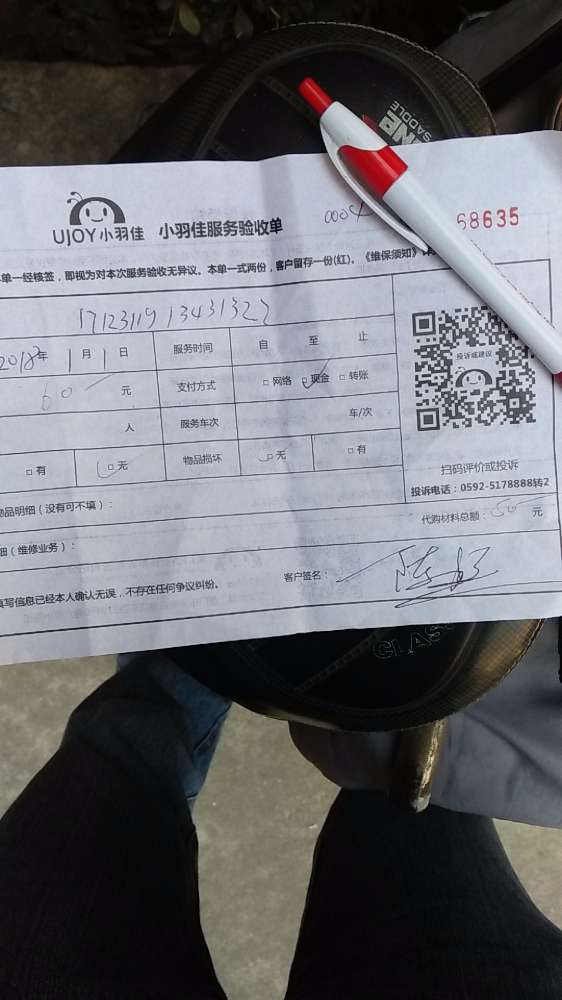 UJOY小羽佳 小羽佳服务验收单 0004 68635
本单一经核签，即视为对本次服务验收无异议。本单一式两份，客户留存一份(红)。《维保须知》详
17123119 13431322
2018年 1月1日 服务时间 自 至 止
60 元 支付方式 □网络 □现金 □转账
人 服务车次 车/次
□有 □无 物品损坏 □无 □有
投诉或建议
扫码评价或投诉
投诉电话：0592-5178888转2
物品明细（没有可不填）：
代购材料总额： 元
细（维修业务）：
填写信息已经本人确认无误，不存在任何争议纠纷。 客户签名：
SADDLE
CLAS